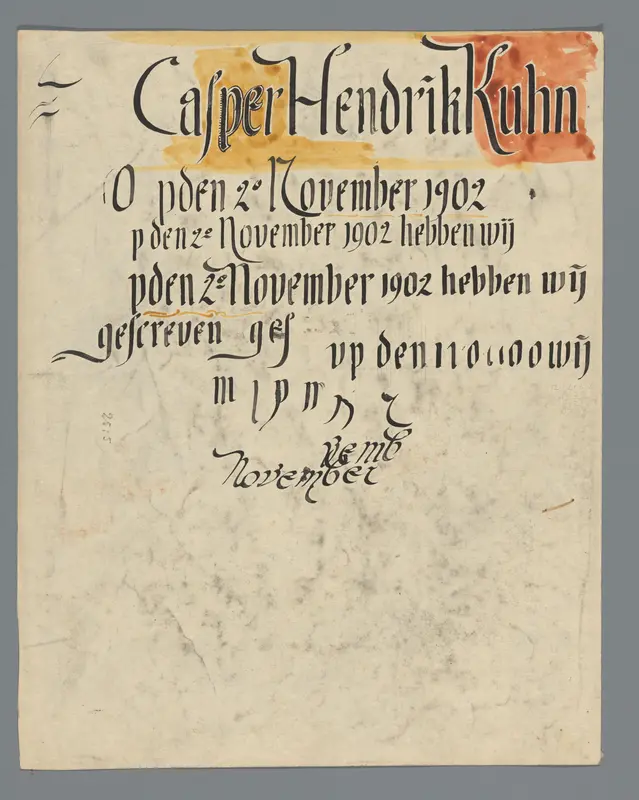 Casper Hendrik Kuhn
O pden 2e November 1902
pden 2e November 1902 hebben wij
pden 2e November 1902 hebben wij
gescreven ges
vp den wij
m p n
vemb
November